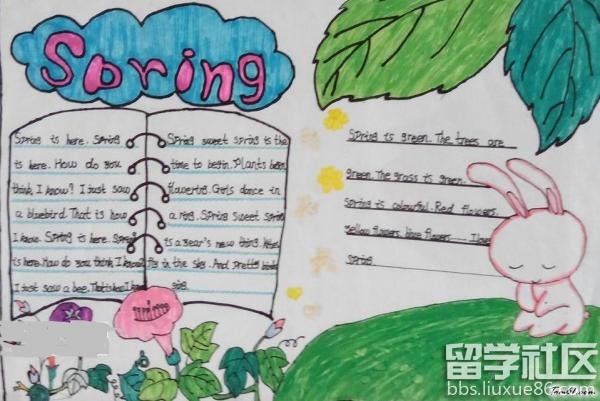 Spring
Spring is here. Spring
is here. How do you
think I know? I just saw
a bluebird. That is how
I know. Spring is here. Spring
is here. How do you think I know?
I just saw a bee. That is how I
Spring sweet spring is the
time to begin. Plants
flowering. Girls dance in
a ring. Spring sweet spring
is a year's new thing.
fly in the sky. And pretty birds
sing.
Spring is green. The trees are
green. The grass is green.
Spring is colourful. Red flowers.
Yellow flowers. blue flowers...... I love
Spring.
留学社区
bbs.liuxue86.com